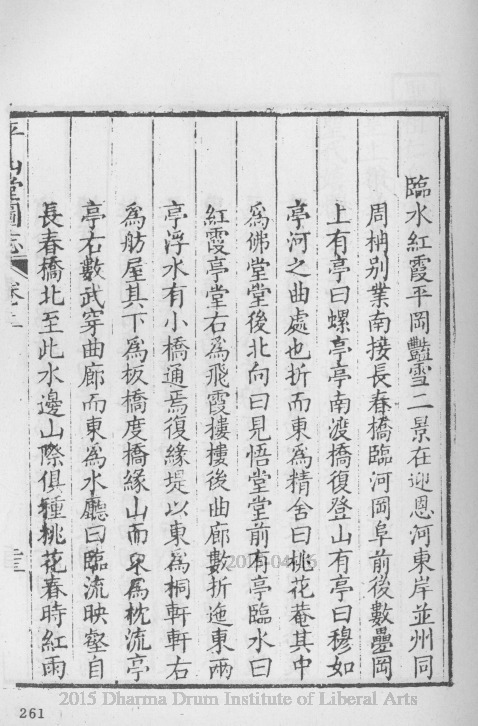 臨水紅霞平岡豔雪二景在迎恩河東岸並州同
周柟别業南接長春橋臨河岡阜前後數疊岡
上有亭曰螺亭亭南渡橋復登山有亭曰穆如
亭河之曲處也折而東為精舍曰桃花菴其中
為佛堂堂後北向曰見悟堂堂前有亭臨水曰
紅霞亭堂右為飛霞樓樓後曲廊數折迤東兩
亭浮水有小橋通焉復緣堤以東為桐軒軒右
為舫屋其下為板橋度橋緣山而東為枕流亭
亭右數武穿曲廊而東為水廳曰臨流映壑自
長春橋北至此水邊山際俱種桃花春時紅雨
平山堂圖志
卷二
261
2015 Dharma Drum Institute of Liberal Arts